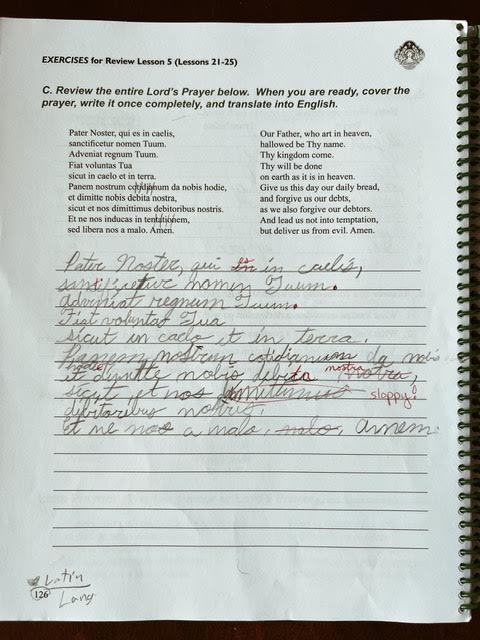 EXERCISES for Review Lesson 5 (Lessons 21-25)
C. Review the entire Lord's Prayer below. When you are ready, cover the
prayer, write it once completely, and translate into English.
Pater Noster, qui es in caelis,
sanctificetur nomen Tuum.
Adveniat regnum Tuum.
Fiat voluntas Tua
sicut in caelo et in terra.
Panem nostrum cotidianum da nobis hodie,
et dimitte nobis debita nostra,
sicut et nos dimittimus debitoribus nostris.
Et ne nos inducas in tentationem,
sed libera nos a malo. Amen.
Our Father, who art in heaven,
hallowed be Thy name.
Thy kingdom come.
Thy will be done
on earth as it is in heaven.
Give us this day our daily bread,
and forgive us our debts,
as we also forgive our debtors.
And lead us not into temptation,
but deliver us from evil. Amen.
Pater Noster, qui in caelis,
nomen Tuum.
adveniat regnum Tuum.
Fiat voluntas Tua
sicut in caelo et in terra.
Panem nostrum da nobis
hodie nostra
et dimitte nobis debita nostra,
sicut et nos sloppy!
debitoribus
et ne nos a malo, malo, Amem.
Latin
Lang
126